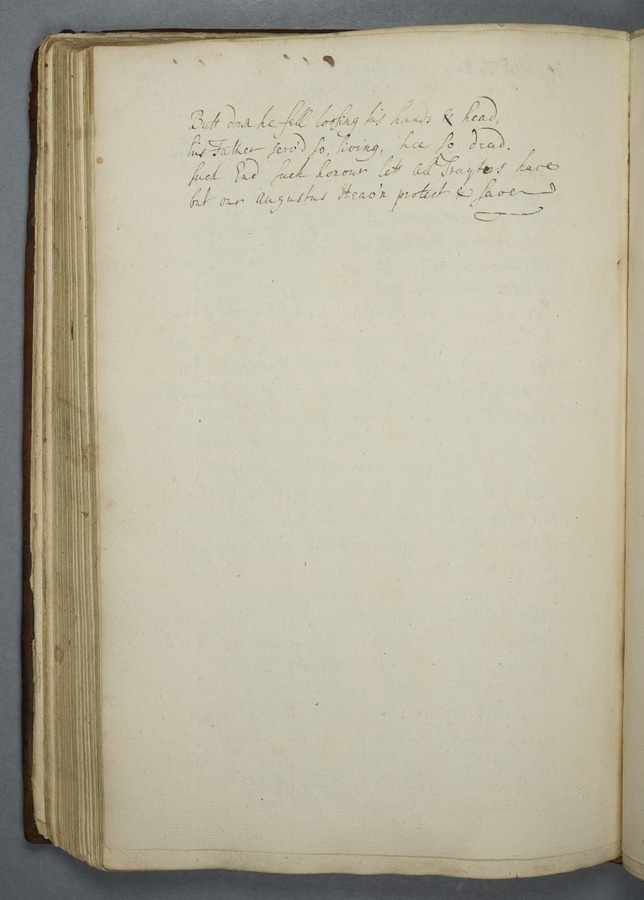 Butt down he fell loosing his hands & head,
his Father serv'd so, living, hee so dead.
such End such honour lett all Traytors have
but our augustus Heav'n protect & save